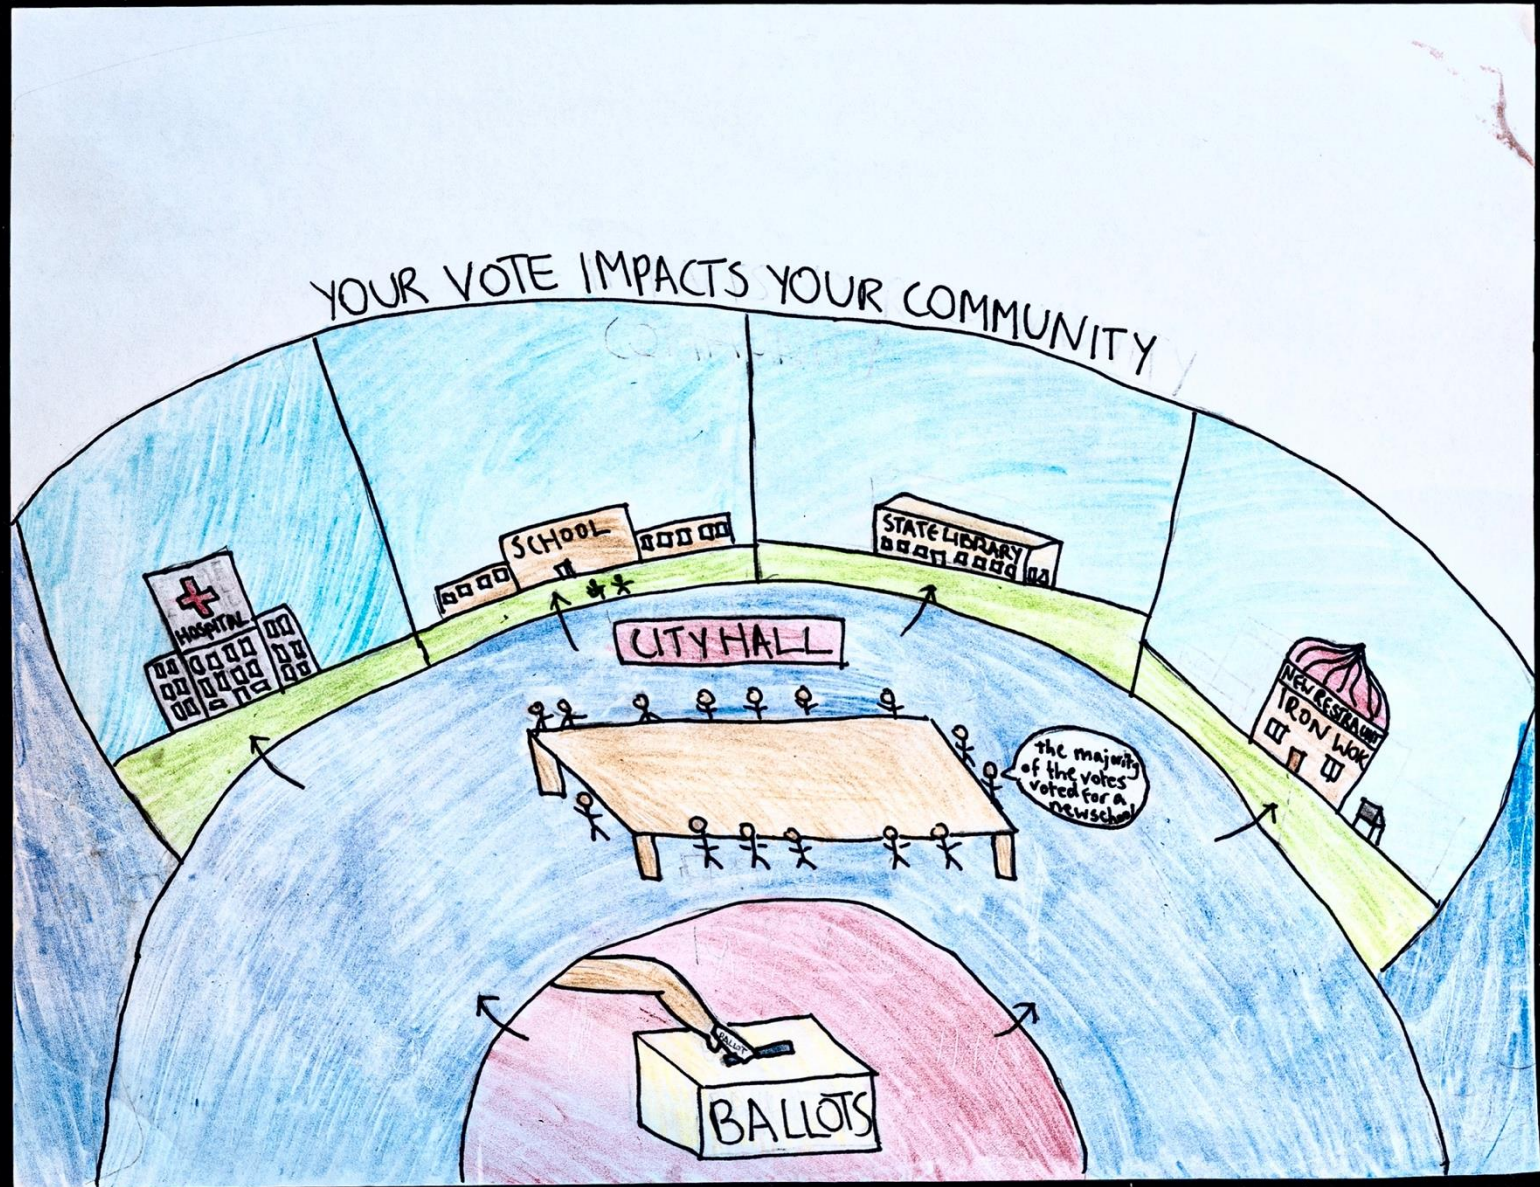 YOUR VOTE IMPACTS YOUR COMMUNITY
HOSPITAL
SCHOOL
STATE LIBRARY
NEW RESTRAUNT
IRON WOK
CITY HALL
the majority
of the votes
voted for a
new school
BALLOT
BALLOTS